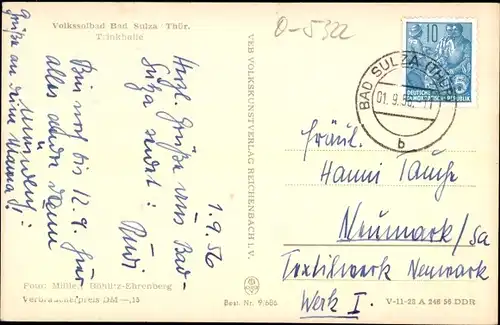 Volkssolbad Bad Sulza Thür.
Trinkhalle
O-5322
10
DEUTSCHE
DEMOKRATISCHE REPUBLIK
BAD SULZA (THÜR)
01.9.56.-11
b
1.9.56
Herzl. Grüße aus Bad-
Sulza sendet:
Rudi
Bin noch bis 12.9. hier
alles andere dann
mündlich!
Grüße an deine Mama!
VEB VOLKSKUNSTVERLAG REICHENBACH I. V.
Fräul.
Hanni Tauche
Neumark/Sa
Textilwerk Neumark
Werk I.
Foto: Müller, Böhlitz-Ehrenberg
Verbraucherpreis DM —,15
Best. Nr. 9/686
V-11-28 A 246 56 DDR